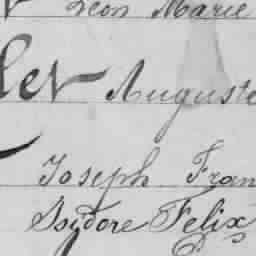 Léon Marie
let Auguste
Joseph Fran
Isydore Felix